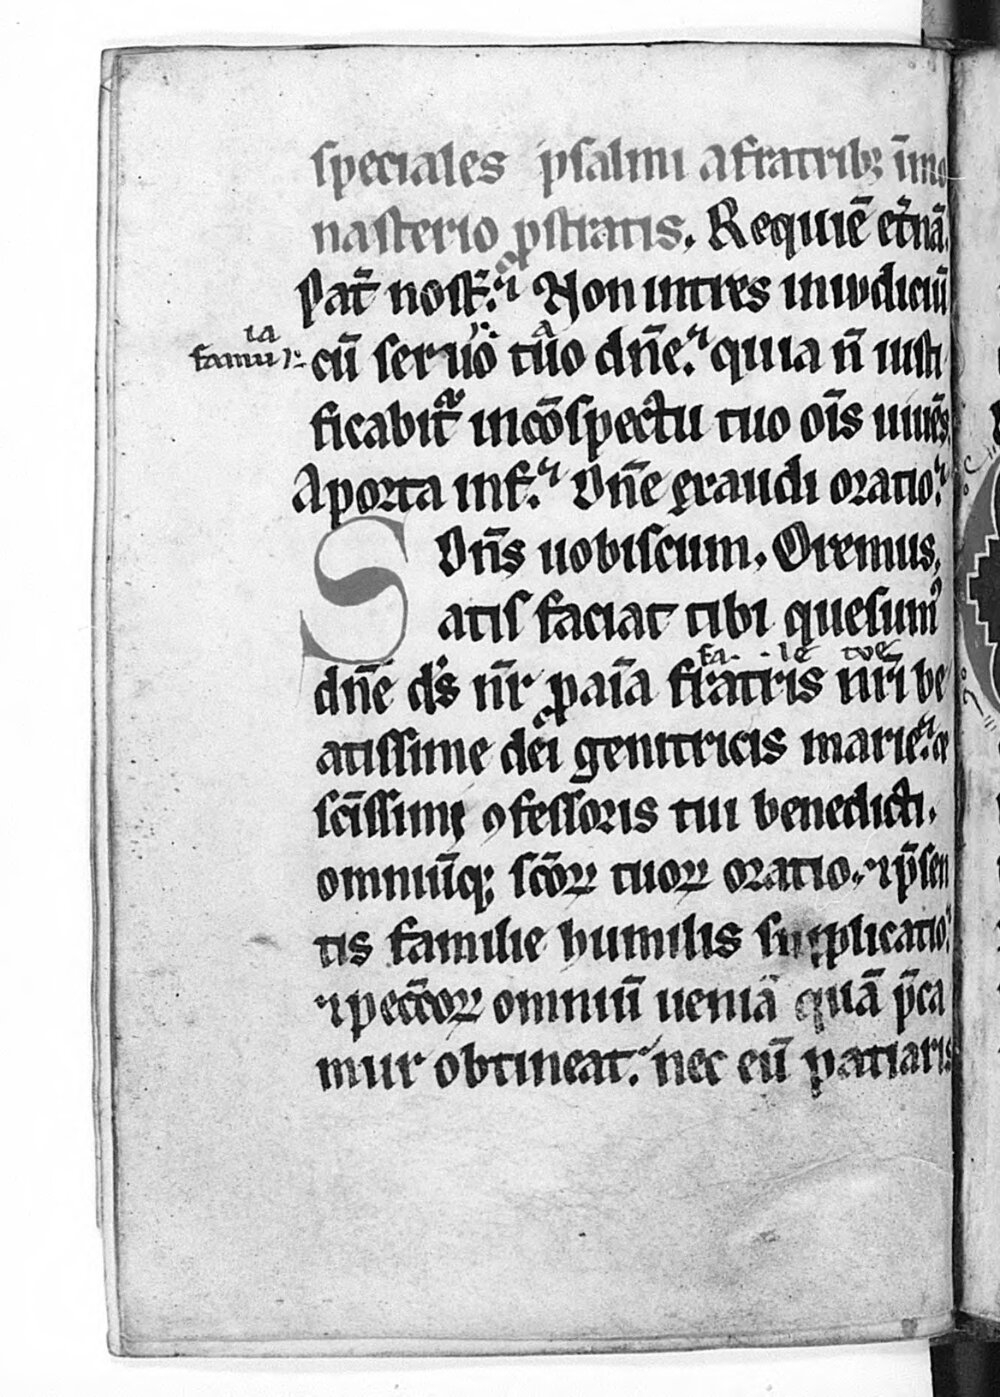 speciales psalmi a fratribꝫ ī mo
nasterio ꝓstratis. Requiē et̄nā.
Pat̄ nost̄. Non intres in iudiciū
ia
famu
cū seruo tuo dn̄e. quia n̄ iusti
ficabit̄ in cōspectu tuo oīs uiuēs
A porta inf. Dn̄e exaudi oratio.
Dn̄s uobiscum. Oremus.
Satisfaciat tibi quesum᷒
fa. le tve
dn̄e ds̄ nr̄ ꝓ aīa fratris nr̄i be
atissime dei genitricis marie. ⁊
sc̄issimi ꝯfessoris tui benedicti.
omniūqꝫ sc̄oꝝ tuoꝝ oratio. ⁊ p̄sen
tis familie humilis supplicatio.
⁊ pecc̄oꝝ omniū ueniā quā p̄ca
mur obtineat. nec eū patiaris